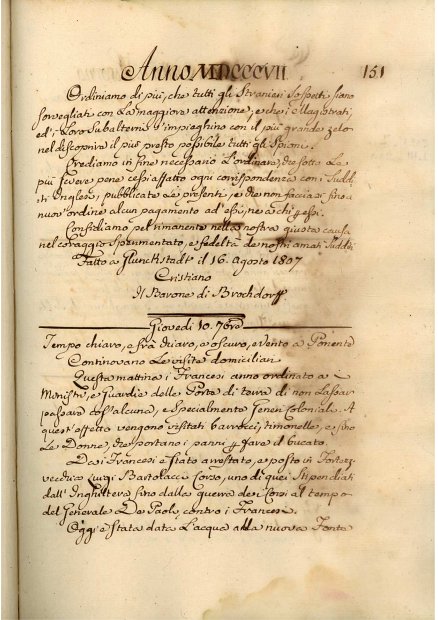 Anno MDCCCVII
151
Ordiniamo di più, che tutti gli Stranieri Sospetti siano
sorvegliati con la maggiore attenzione, e che i Magistrati,
ed i Loro Subalterni s'impieghino con il più grande zelo
nel discoprire il più presto possibile tutti gli Spioni.
Crediamo in fine necessario l'ordinare, che sotto Le
più severe pene cessi affatto ogni corrispondenza con i Suddi-
ti Inglesi, pubblicate Le presenti, e che non facciasi fino a
nuov'ordine alcun pagamento ad essi, ne a chi per essi.
Confidiamo pel rimanente nella nostra giusta causa
nel coraggio Sperimentato, e fedeltà de nostri amati Sudditi
Fatto a Gluckstadt il 16. agosto 1807
Cristiano
Il Barone di Brochdorff
Giovedi 10. 7bre
Tempo chiaro, e frà chiaro, e oscuro, e vento a Ponente
Continovano Le visite domiciliari
Questa mattina i Francesi anno ordinato a
Ministri, e Guardie delle Porte di terra di non Lassar
passare cos'alcuna, e specialmente Generi Coloniali. A
quest'effetto vengono visitati barrocci, timonelle, e fino
Le Donne, che portano i panni per fare il bucato.
Dai Francesi è Stato arrestato, e posto in Fortez.
vecchia Luigi Bartolacci Corso, uno di quei Stipendiati
dall'Inghilterra fino dalla guerra dei Corsi al tempo
del Generale De Paoli contro i Francesi.
Oggi è Stata data L'acqua alla nuova Fonte